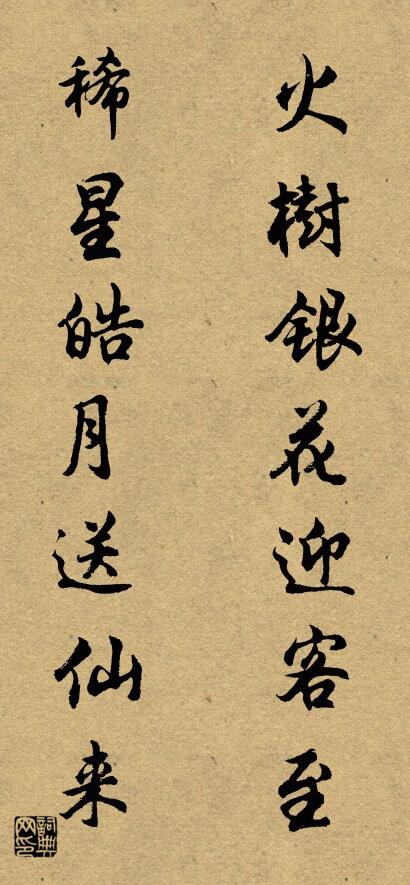 火樹銀花迎客至
稀星皓月送仙来
詞典网印